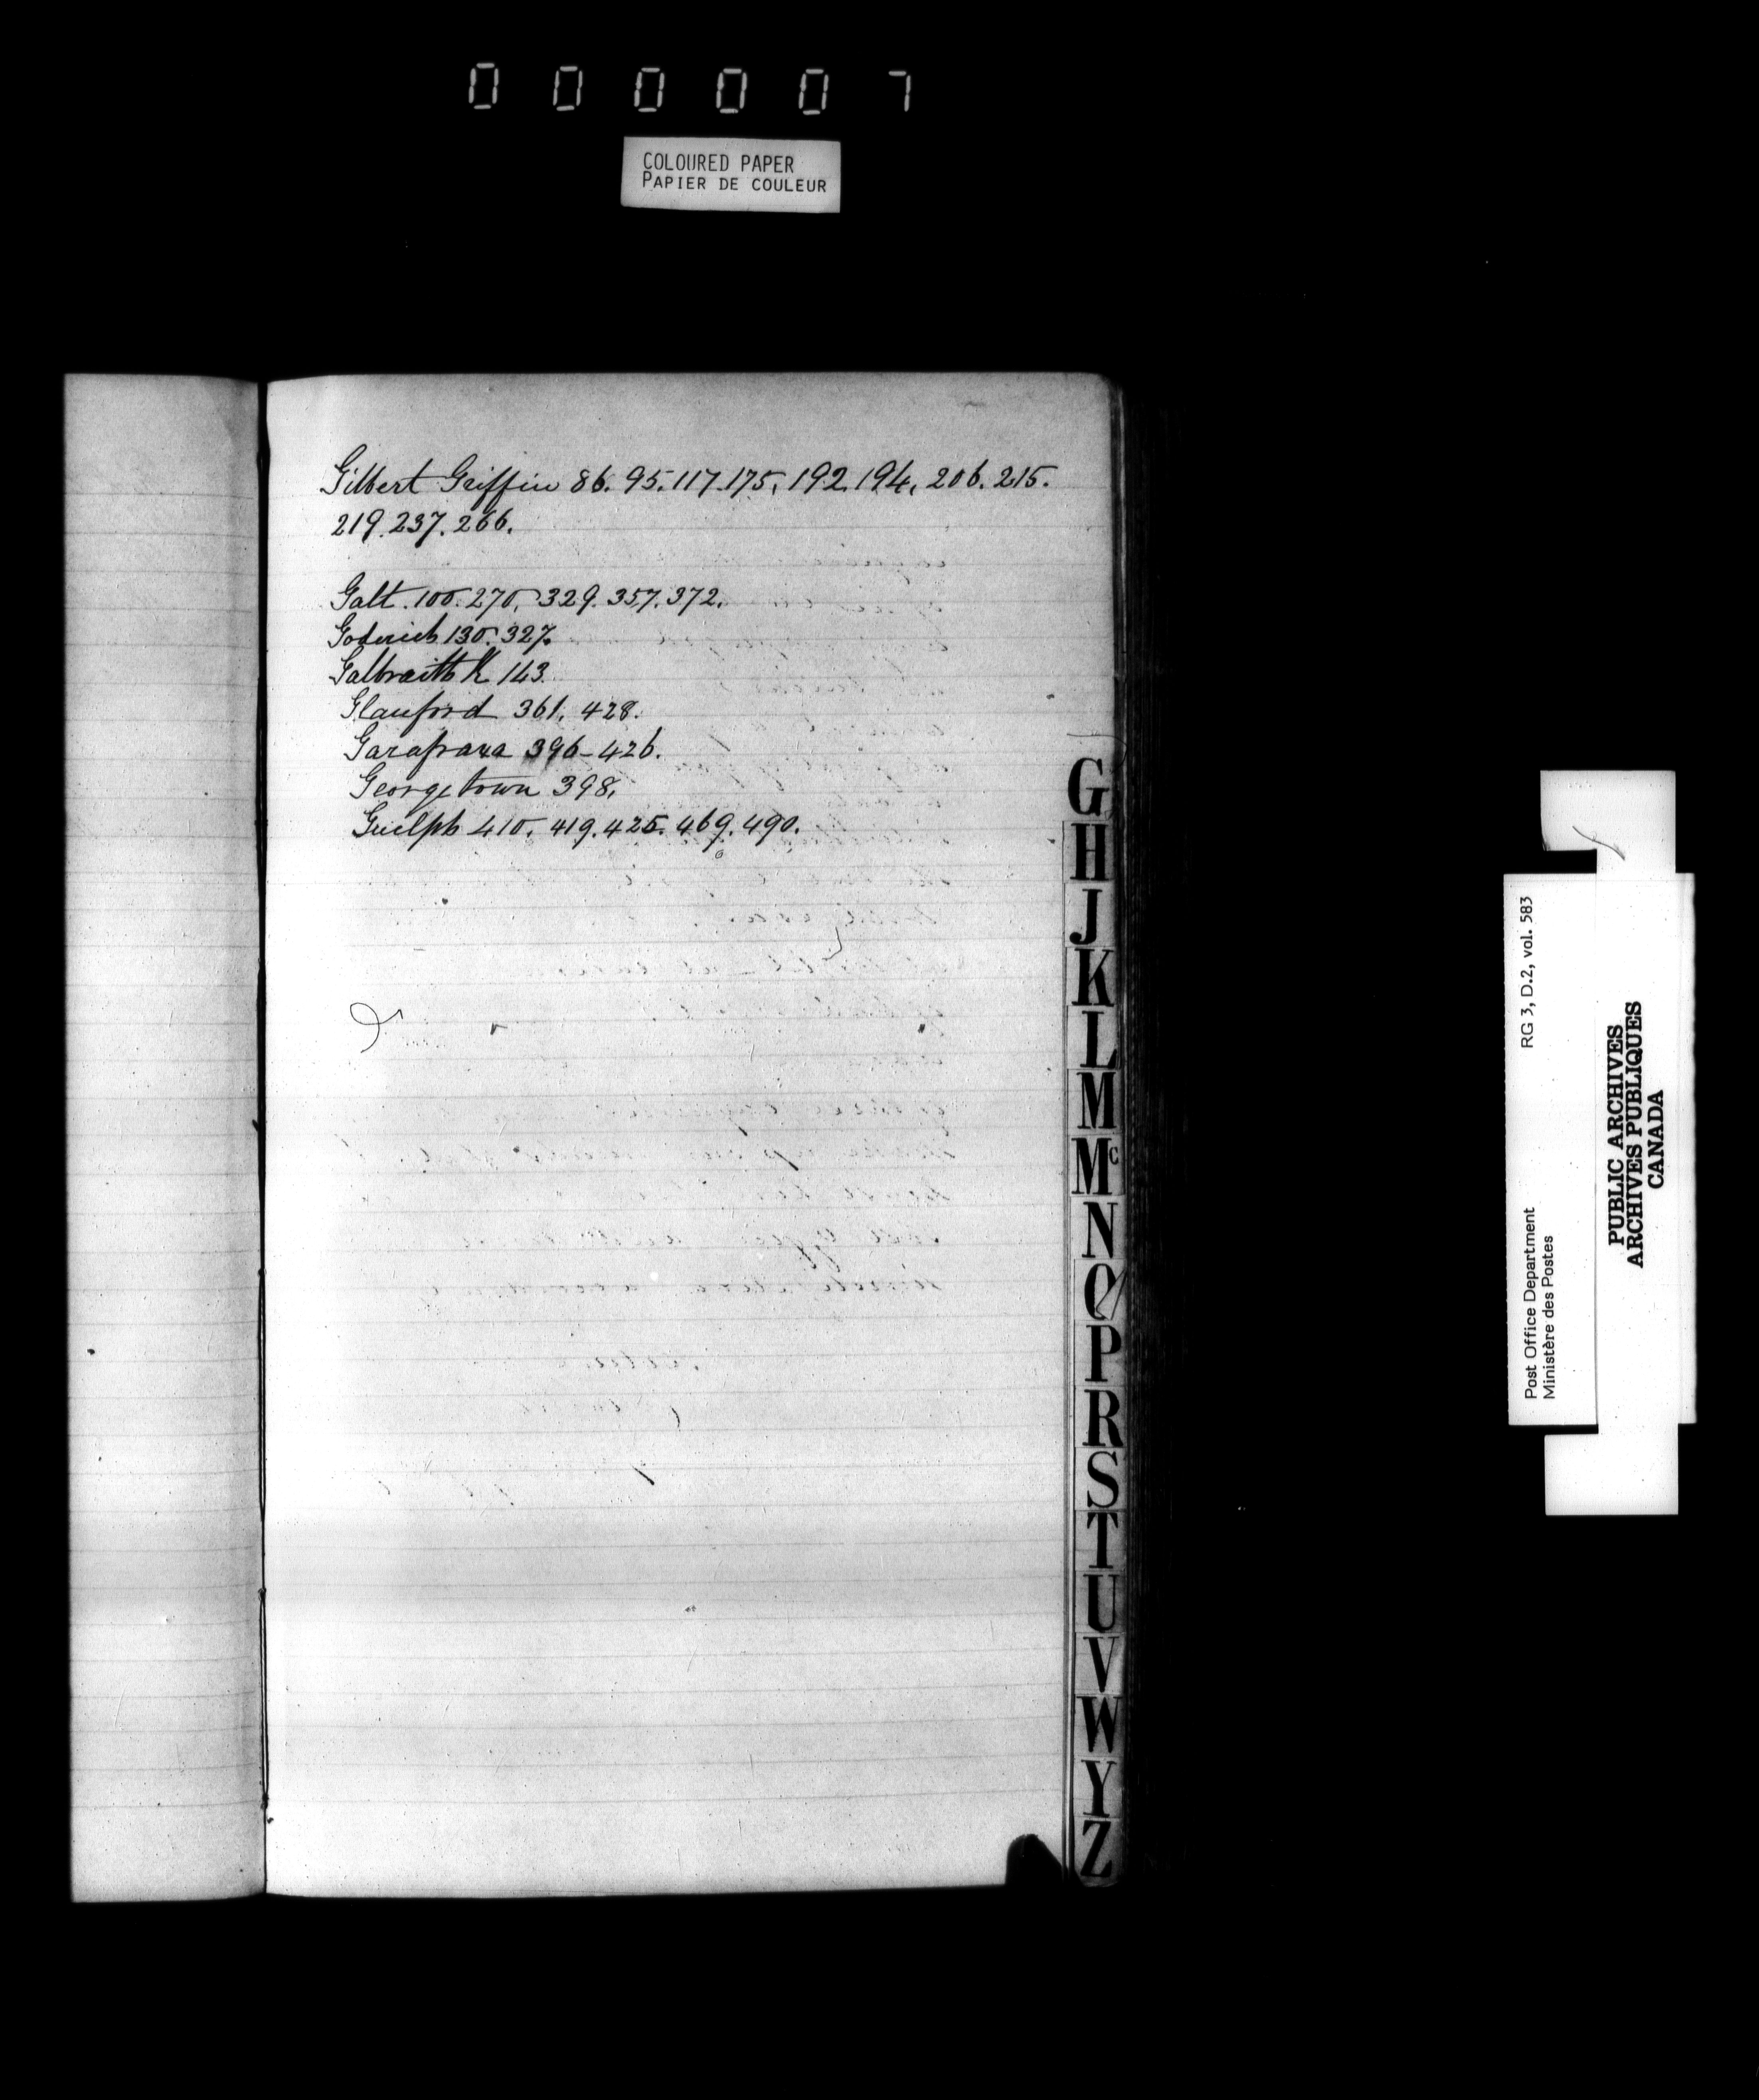 0 0 0 0 0 7
COLOURED PAPER
PAPIER DE COULEUR
Gilbert Griffin 86. 95. 117. 175, 192. 194, 206. 215.
219. 237. 266.
Galt. 100. 270, 329. 357. 372.
Goderich 130. 327.
Galbraith K 143.
Glanford 361, 428.
Garafraxa 396-426.
Georgetown 398,
Guelph 410, 419. 425. 469. 490.
G
H
J
K
L
M
Mc
N
O
P
R
S
T
U
V
W
Y
Z
Post Office Department RG 3, D.2, vol. 583
Ministère des Postes
PUBLIC ARCHIVES
ARCHIVES PUBLIQUES
CANADA